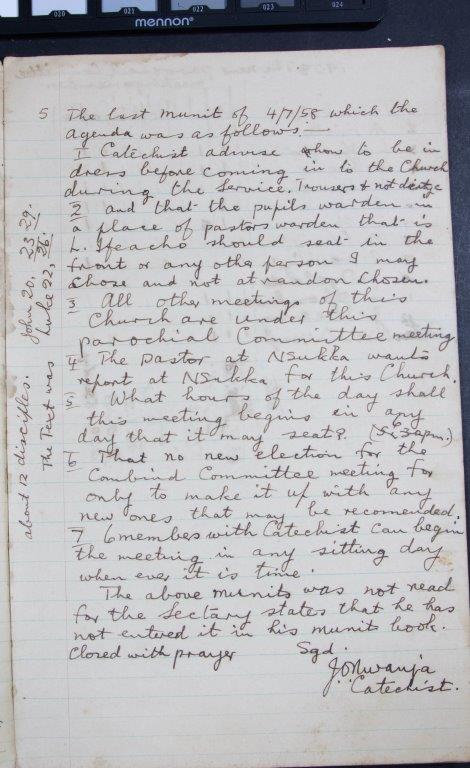 020 021 022 023 024
mennon
5 The last munit of 4/7/58 which the
agenda was as follows:—
1 Catechist adwise how to be in
dress before coming in to the Church
during the Service. Trousers & not
2 and that the pupils warden in
a place of pastors warden that is
L. Ifeacho should seat in the
front or any other person I may
chose and not at randon chosen.
3 All other meetings of this
Church are under this
parochial Committee meeting
4 The pastor at Nsukka wants
report at Nsukka for this Church.
5 What hours of the day shall
this meeting begins in any
day that it may seat? (5.30pm.)
6 That no new election for the
Combind Committee meeting for
only to make it up with any
new ones that may be recomended.
7 6 members with Catechist can begin
the meeting in any sitting day
when ever it is time.
The above munits was not read
for the Sectary states that he has
not entered it in his munits book.
Closed with prayer Sgd.
J.O. Nwanja
Catechist.
The Text was Luke 22, 26.
about 12 disciples. John 20, 23 29.